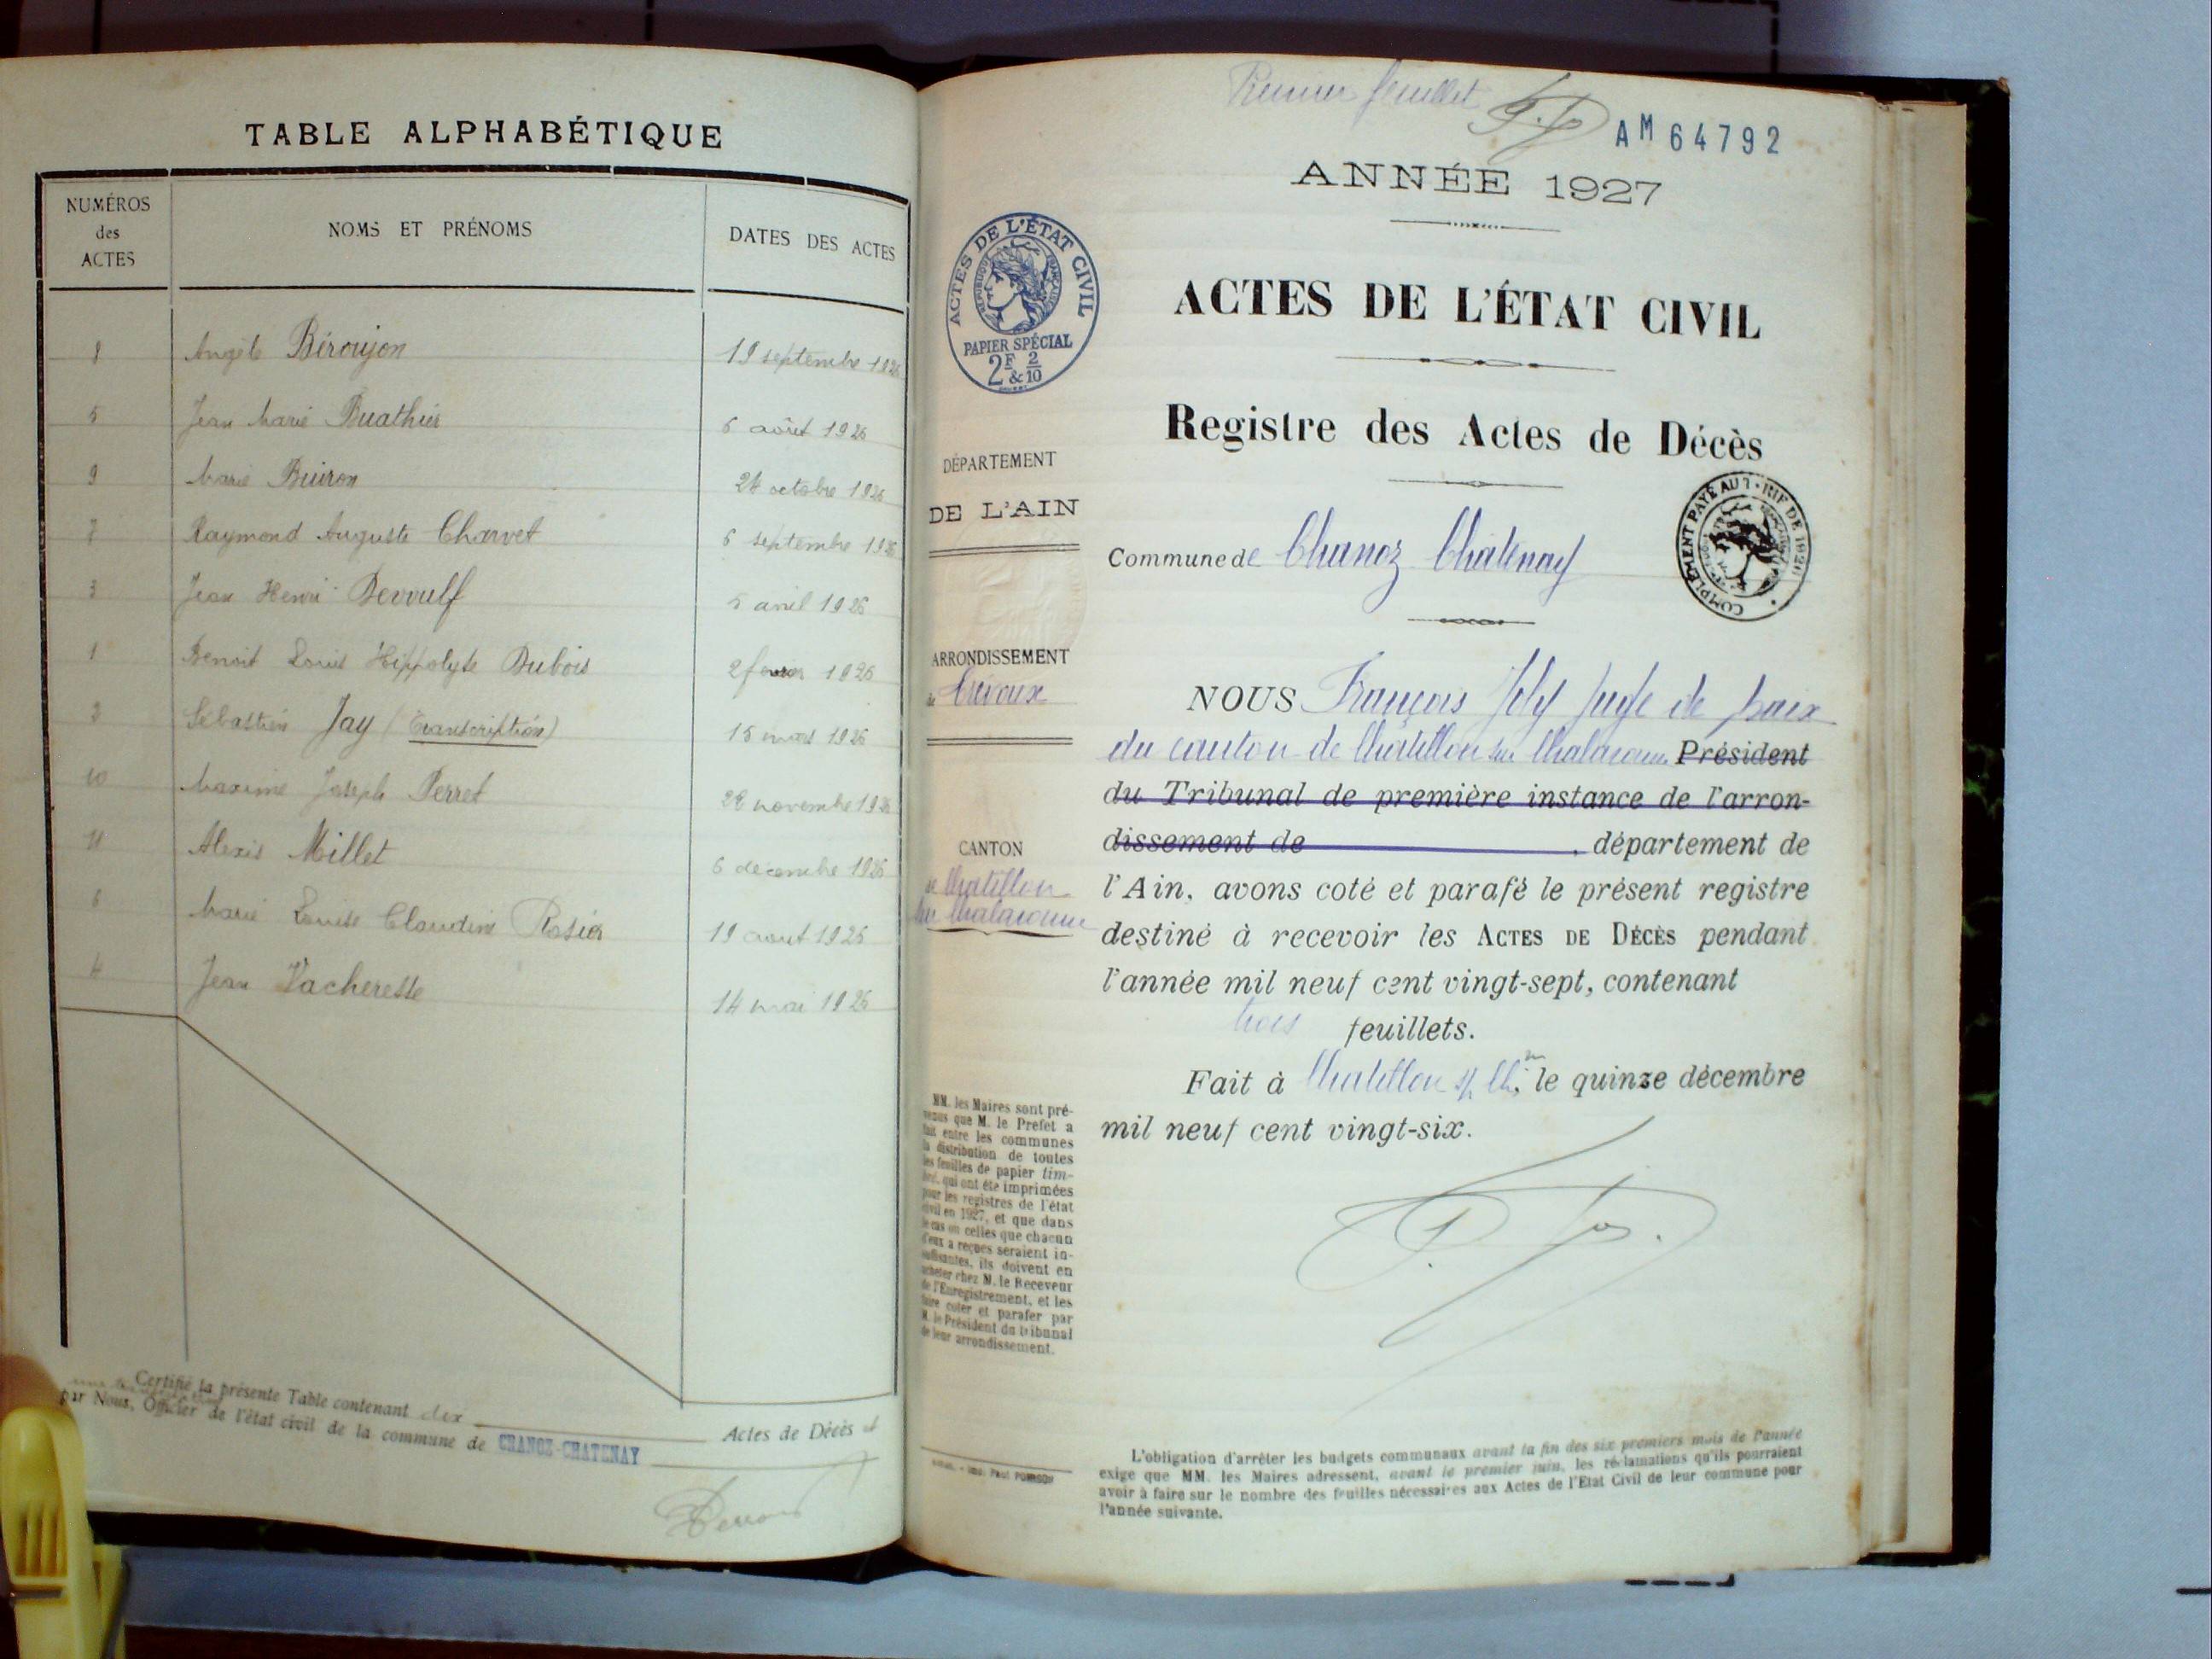 TABLE ALPHABÉTIQUE
NUMÉROS des ACTES
NOMS ET PRÉNOMS
DATES DES ACTES
8 Angèle Béroujon 19 septembre 1926
5 Jean Marie Buathier 6 août 1926
9 Marie Buiron 24 octobre 1926
7 Raymond Auguste Charvet 6 septembre 1926
3 Jean Henri 5 avril 1926
1 Benoit Louis Hippolyte Dubois 2 1926
2 Sébastien Jay (Transcription) 15 mars 1926
10 Maxime Joseph Perret 28 novembre 1926
11 Alexis Millet 6 décembre 1926
6 Marie Louise Claudine Rosier 19 aout 1926
4 Jean Vacheresse 14 mai 1926
Certifié la présente Table contenant dix Actes de Décès et
une transcription
par Nous, Officier de l'état civil de la commune de CHANOZ-CHATENAY
Premier feuillet
AM 64792
ANNÉE 1927
ACTES DE L'ÉTAT CIVIL
RÉPUBLIQUE FRANÇAISE
PAPIER SPÉCIAL
2F & 2/10
ACTES DE L'ÉTAT CIVIL
Registre des Actes de Décès
DÉPARTEMENT
DE L'AIN
COMPLÉMENT PAYÉ AU TARIF DE 1920
Commune de Chanoz Châtenay
ARRONDISSEMENT
de Trévoux
NOUS François Joly Juge de paix
du canton de Châtillon sur Chalaronne Président
du Tribunal de première instance de l'arron-
dissement de , département de
CANTON
de Chatillon
sur Chalaronne
l'Ain, avons coté et parafé le présent registre
destiné à recevoir les ACTES DE DÉCÈS pendant
l'année mil neuf cent vingt-sept, contenant
trois feuillets.
Fait à Chatillon s/ Ch.ne, le quinze décembre
mil neuf cent vingt-six.
MM. les Maires sont pré-
venus que M. le Préfet a
fait entre les communes
la distribution de toutes
les feuilles de papier tim-
bré, qui ont été imprimées
pour les registres de l'état
civil en 1927, et que dans
le cas où celles que chacun
d'eux a reçues seraient in-
suffisantes, ils doivent en
acheter chez M. le Receveur
de l'Enregistrement, et les
faire coter et parafer par
M. le Président du tribunal
de leur arrondissement.
Imp. Paul
L'obligation d'arrêter les budgets communaux avant la fin des six premiers mois de l'année
exige que MM. les Maires adressent, avant le premier juin, les réclamations qu'ils pourraient
avoir à faire sur le nombre des feuilles nécessaires aux Actes de l'Etat Civil de leur commune pour
l'année suivante.